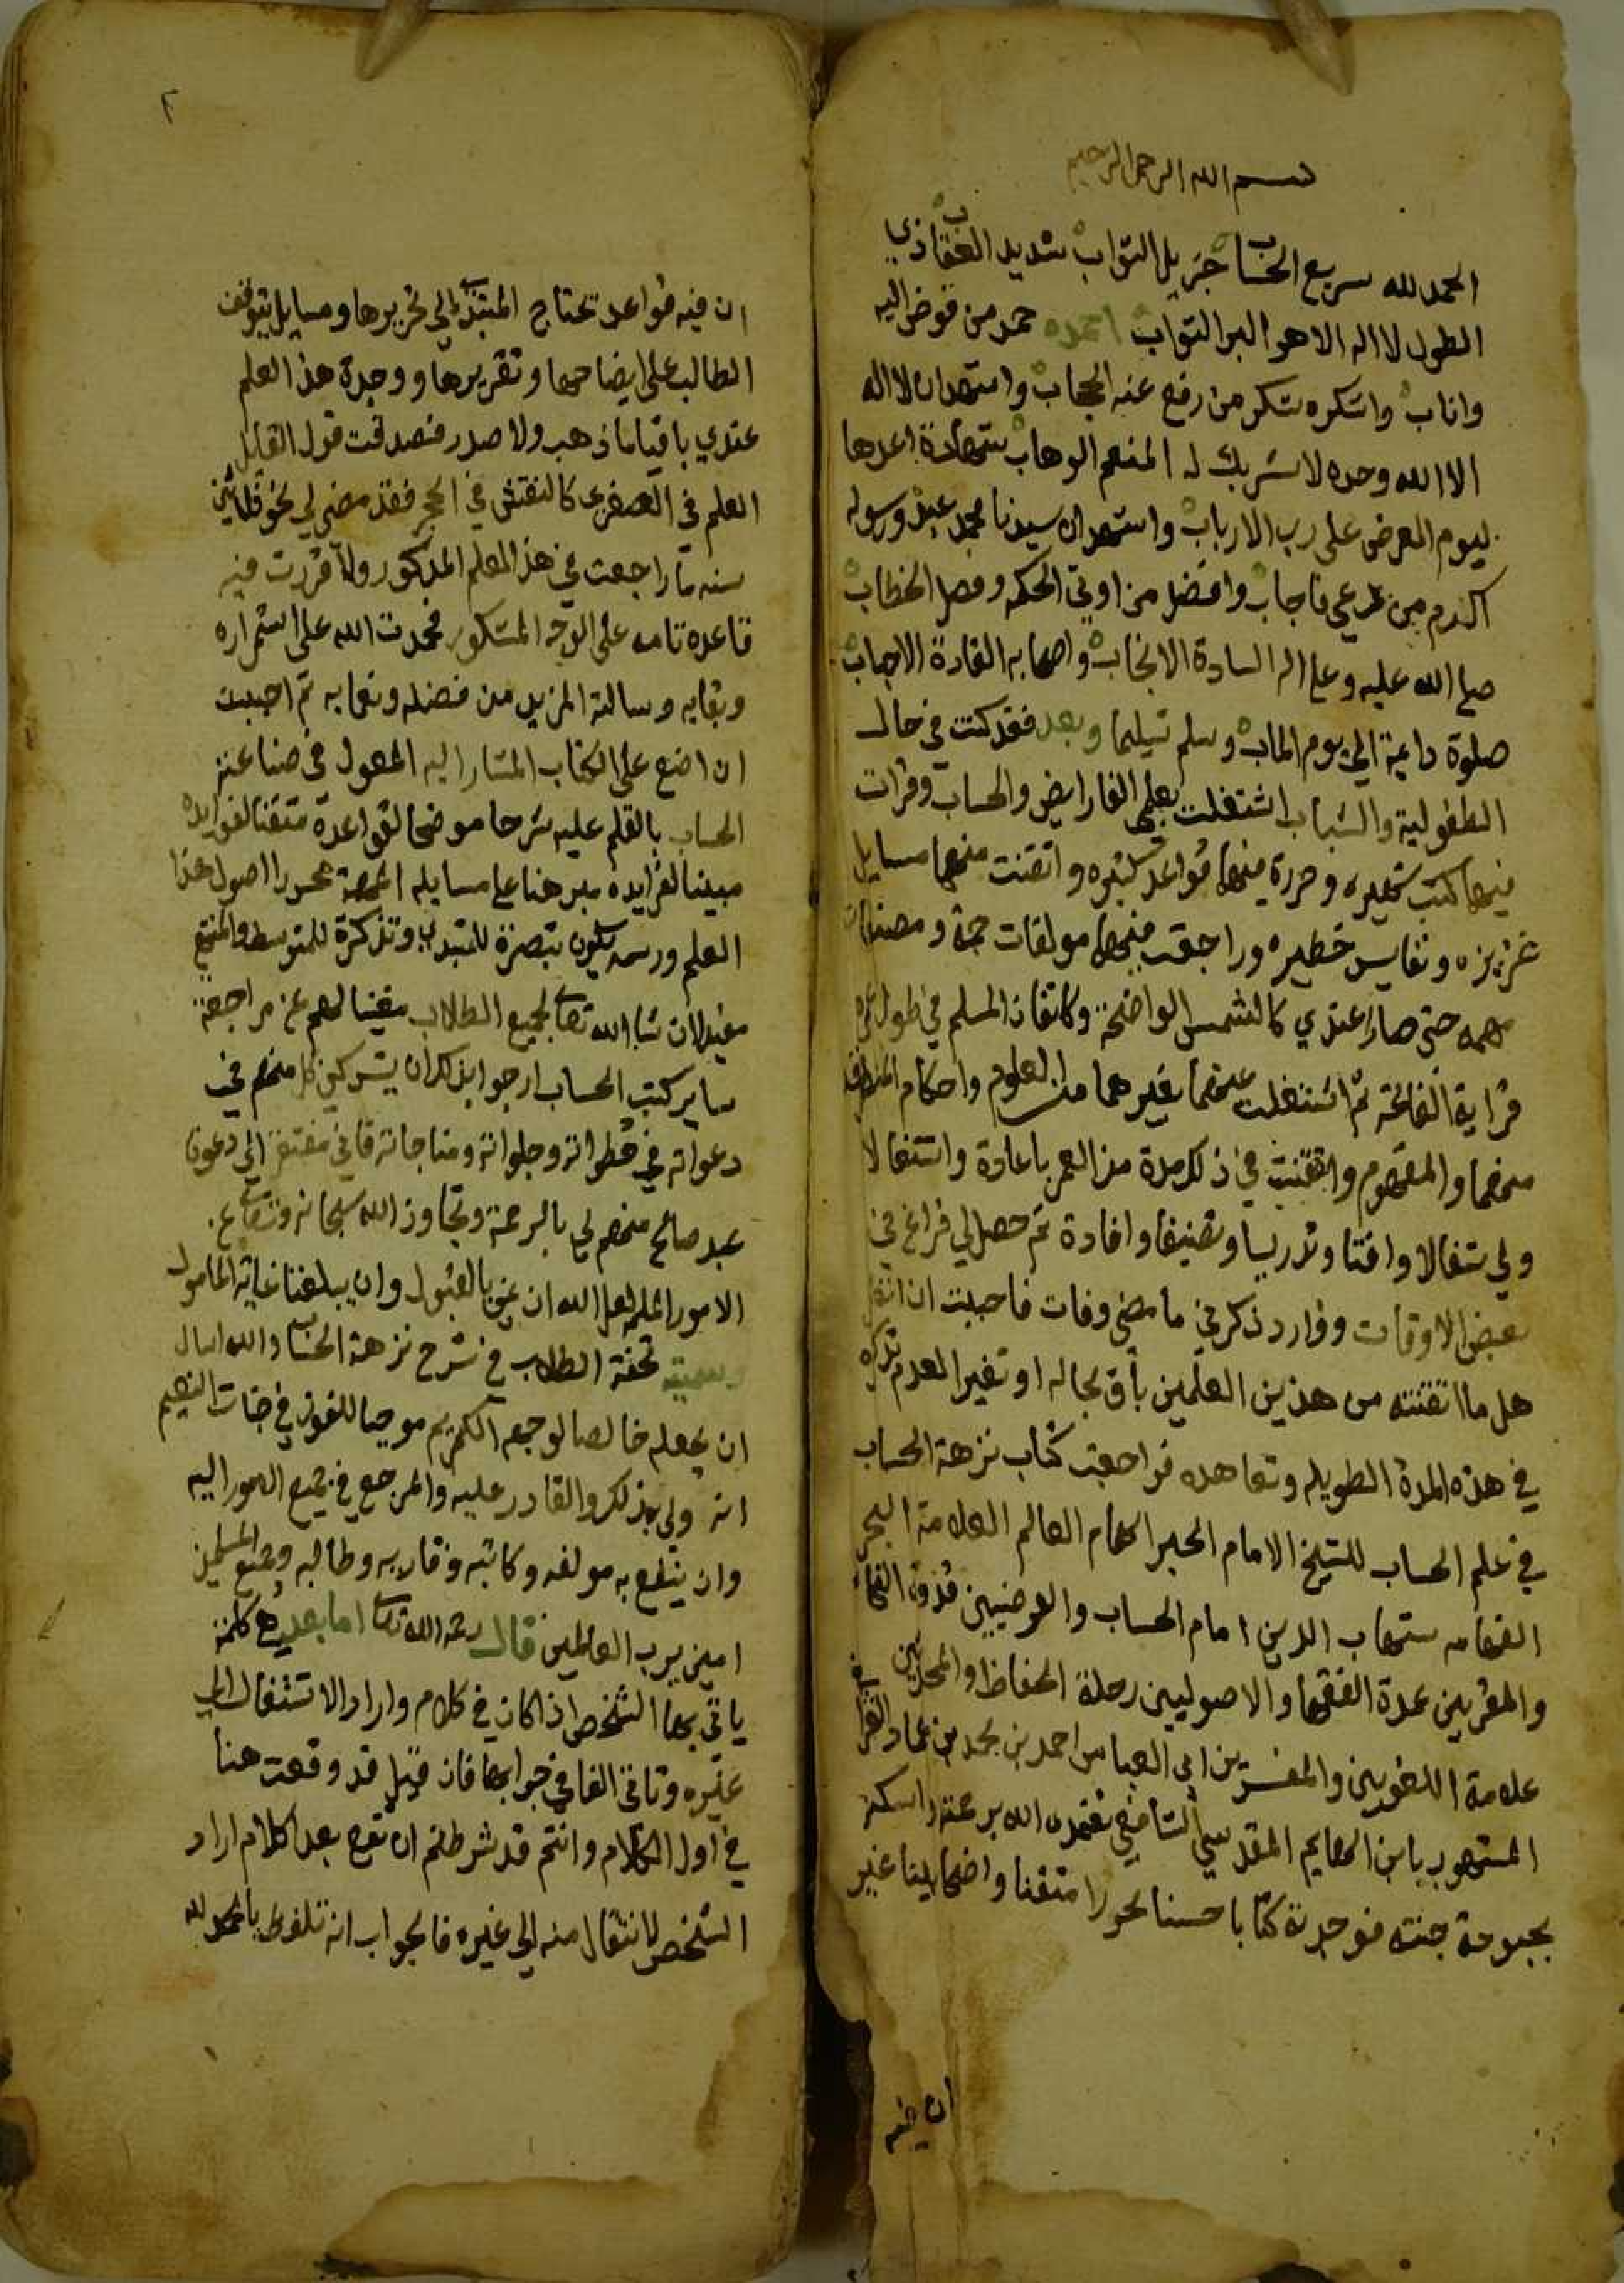 بسم الله الرحمن الرحيم
الحمد لله سريع الحساب جزيل الثواب شديد العقاب ذي
الطول لا اله الا هو البر التواب احمده حمد من فوض اليه
واناب واشكره شكر من رفع عنه الحجاب واشهد ان لا اله
الا الله وحده لا شريك له المنعم الوهاب شهادة اعدها
ليوم العرض على رب الارباب واشهد ان سيدنا محمد عبده ورسوله
اكرم من دعي فاجاب وافضل من اوتي الحكمه وفصل الخطاب
صلى الله عليه وعلى اله السادة الانجاب واصحابه القادة الاحباب
صلوة داعية الي يوم الماب وسلم تسليما وبعد فقد كنت في حال
الطفولية والشباب اشتغلت بعلمي الفرايض والحساب وقرات
فيهما كتب كثيره وحررة فيهما قواعد كثيره واتقنت منهما مسايل
غزيزه ونفايس خطيره وراجعت فيهما مولفات جمة ومصنفات
مهمه حتى صارا عندي كالشمس الواضحة وكاتقان المسلم في طول عمره
قراية الفاتحة ثم اشتغلت عنهما بغيرهما من العلوم واحكام المنطوق
منهما والمفهوم واتقنت في ذلك مدة من العمر باعادة واشتغالا
ولي شغالا وافتا وتدريسا وتصنيفا وافادة ثم حصل لي فراغ في
بعض الاوقات ووارد ذكرني ما مضى وفات فاحببت ان انظر
هل ما اتقنته من هذين العلمين باق بحاله او تغير لعدم تذكره
في هذه المدة الطويله وتعاهده فراجعت كتاب نزهة الحساب
في علم الحساب للشيخ الامام الحبر الهمام العالم العلامة البحر
الفهامه شهاب الدين امام الحساب والفرضيين قدوة النحاة
والمقريين عمدة الفقها والاصوليين رحلة الحفاظ والمحدثين
علامة اللغويين والمفسرين ابي العباس احمد بن محمد بن عماد القرافي
المشهور بابن الهايم المقدسي الشافعي تغمده الله برحمته واسكنه
بحبوحة جنته فوجدته كتابا حسنا محررا متقنا واضحا بينا غير
ان فيه
٢
ان فيه قواعد تحتاج المبتدي الي تحريرها ومسايل يتوقف
الطالب على ايضاحها وتقريرها ووجدة هذا العلم
عندي باقيا ما ذهب ولا صدر فصدقت قول القايل
العلم في الصغر كالنقش في الحجر فقد مضى لي نحو ثلاثين
سنه ما راجعت في هذا العلم المذكور ولا قررت فيه
قاعده تامه على الوجه المشكور فحمدت الله على استمراره
وبقايه وسالته المزيد من فضله ونعمايه ثم احببت
ان اضع على الكتاب المشار اليه المعول في صناعته
الحساب بالقلم عليه شرحا موضحا لقواعده متقنا لفوايده
مبينا لفرايده مبرهنا على مسايله المهمة محررا اصول هذا
العلم ورسمه يكون تبصرة للمبتدي وتذكرة للمتوسط والمنتهي
مفيدا ان شا الله تعالى لجميع الطلاب مغنيا لهم عن مراجعة
ساير كتب الحساب ارجوا بذلك ان يشركني كل منهم في
دعواته في خطراته وجلواته ومناجاته فاني مفتقر الي دعوة
عبد صالح منهم لي بالرحمة وتجاوز الله سبحانه وتعالى عن
الامور الملمه لعل الله ان يمن بالقبول وان يبلغنا غاية المامول
وسميته تحفة الطلاب في شرح نزهة الحساب والله اسال
ان يجعله خالصا لوجهه الكريم موجبا للفوز في جنات النعيم
انه ولي بذلك والقادر عليه والمرجع في جميع الامور اليه
وان ينفع به مولفه وكاتبه وقاريه وطالبه وجميع المسلمين
امين يرب العالمين قال رحمه الله تعالى اما بعد هي كلمة
ياتي بها الشخص اذا كان في كلام واراد الانتقال الي
غيره وتاتي الفا في جوابها فان قيل قد وقعت هنا
في اول الكلام وانتم قد شرطتم ان تقع بعد كلام اراد
الشخص الانتقال منه الي غيره فالجواب انه تلفظ بالحمد لله